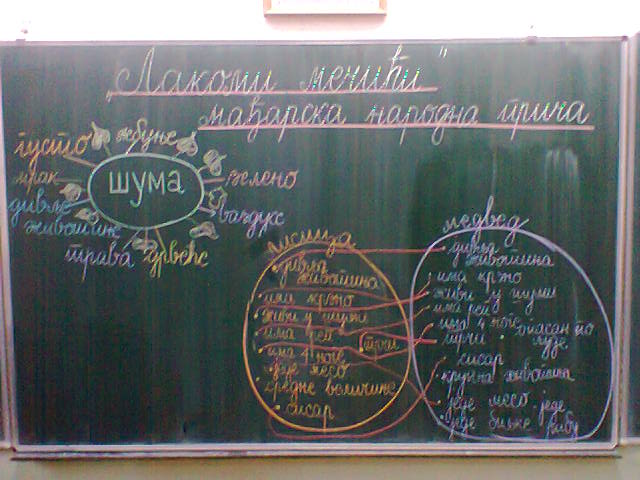 „Лакоми мечићи"
мађарска народна прича
густо
жбуње
мрак
шума
зелено
дивље
животиње
ваздух
трава
дрвеће
лисица
дивља
животиња
има крзно
живи у шуми
има реп
има 4 ноге
једе месо
средње величине
сисар
трчи
медвед
дивља
животиња
има крзно
живи у шуми
има реп
има 4 ноге
трчи
опасан по
људе
сисар
крупна животиња
једе месо
једе биљке
једе
рибу